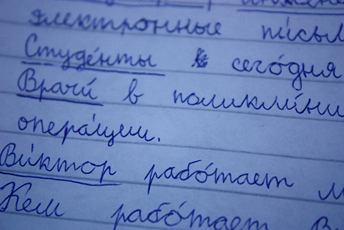 электронные письм
Студе́нты сего́дня
Врачи́ в поликли́ни
опера́ции.
Ви́ктор рабо́тает м
Кем рабо́тает В